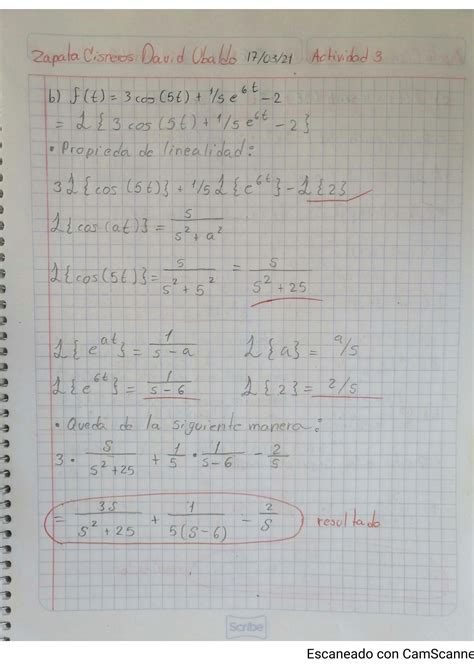 Zapata Cisneros David Ubaldo 17/03/21 Actividad 3
b) f(t) = 3 cos (5t) + 1/5 e^6t - 2
= ℒ{3 cos (5t) + 1/5 e^6t - 2}
• Propieda de linealidad:
3ℒ{cos (5t)} + 1/5 ℒ{e^6t} - ℒ{2}
ℒ{cos (at)} = s/(s² + a²)
ℒ{cos (5t)} = s/(s² + 5²) = s/(s² + 25)
ℒ{e^at} = 1/(s - a) ℒ{a} = a/s
ℒ{e^6t} = 1/(s - 6) ℒ{2} = 2/s
• Queda de la siguiente manera:
3 · s/(s² + 25) + 1/5 · 1/(s - 6) - 2/s
= 3s/(s² + 25) + 1/(5(s - 6)) - 2/s resultado
Scribe
Escaneado con CamScanne